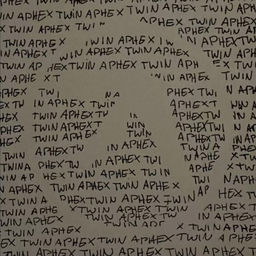 HEX TWIN APHEX TWIN APHEX
X TWIN APHEX TWIN APHEX TWIN
TWIN APHEX WIN APHEX TWIN APHEX TW
IN APHEX T WIN APHEX TWIN APHEX
TWIN AP HEX TWIN APHEX TWIN APH EX TWIN
N APHE XT IN APHEX TWIN
APHEX TWI NA PHEX TWI N APH
EX TW IN APHEX TWIN APHEXT WIN
HEX TWIN APHEX TW IN APHEX TW IN AP
HEX TWIN APHEX WIN APHEXTWI N AP
EX TWIN APHEX TWIN APHEX TW
TWIN APHEX TW IN APHEX TWIN A PHEX
TWINA PHEX TW IN APHEX TWI NAPHE XTW
IN AP HEX TWIN APHEX TWIN APHEX XTWI
N APHEX TWIN APHEX TWIN APHE X AP HEX TW
X TWIN A PHEXTWIN APHEX TWIN APHEX
TWIN APHE X TWIN APHEX TWIN APHEX TWI
TWIN APHEX TWIN APHEX TW IN APHEX
TWIN APHEX TWIN APHEX TWIN APHE
EX TWIN APHEX TWIN APHEX TWIN APHEX
X TWIN APHEX TWIN APHEX TWIN APHEX